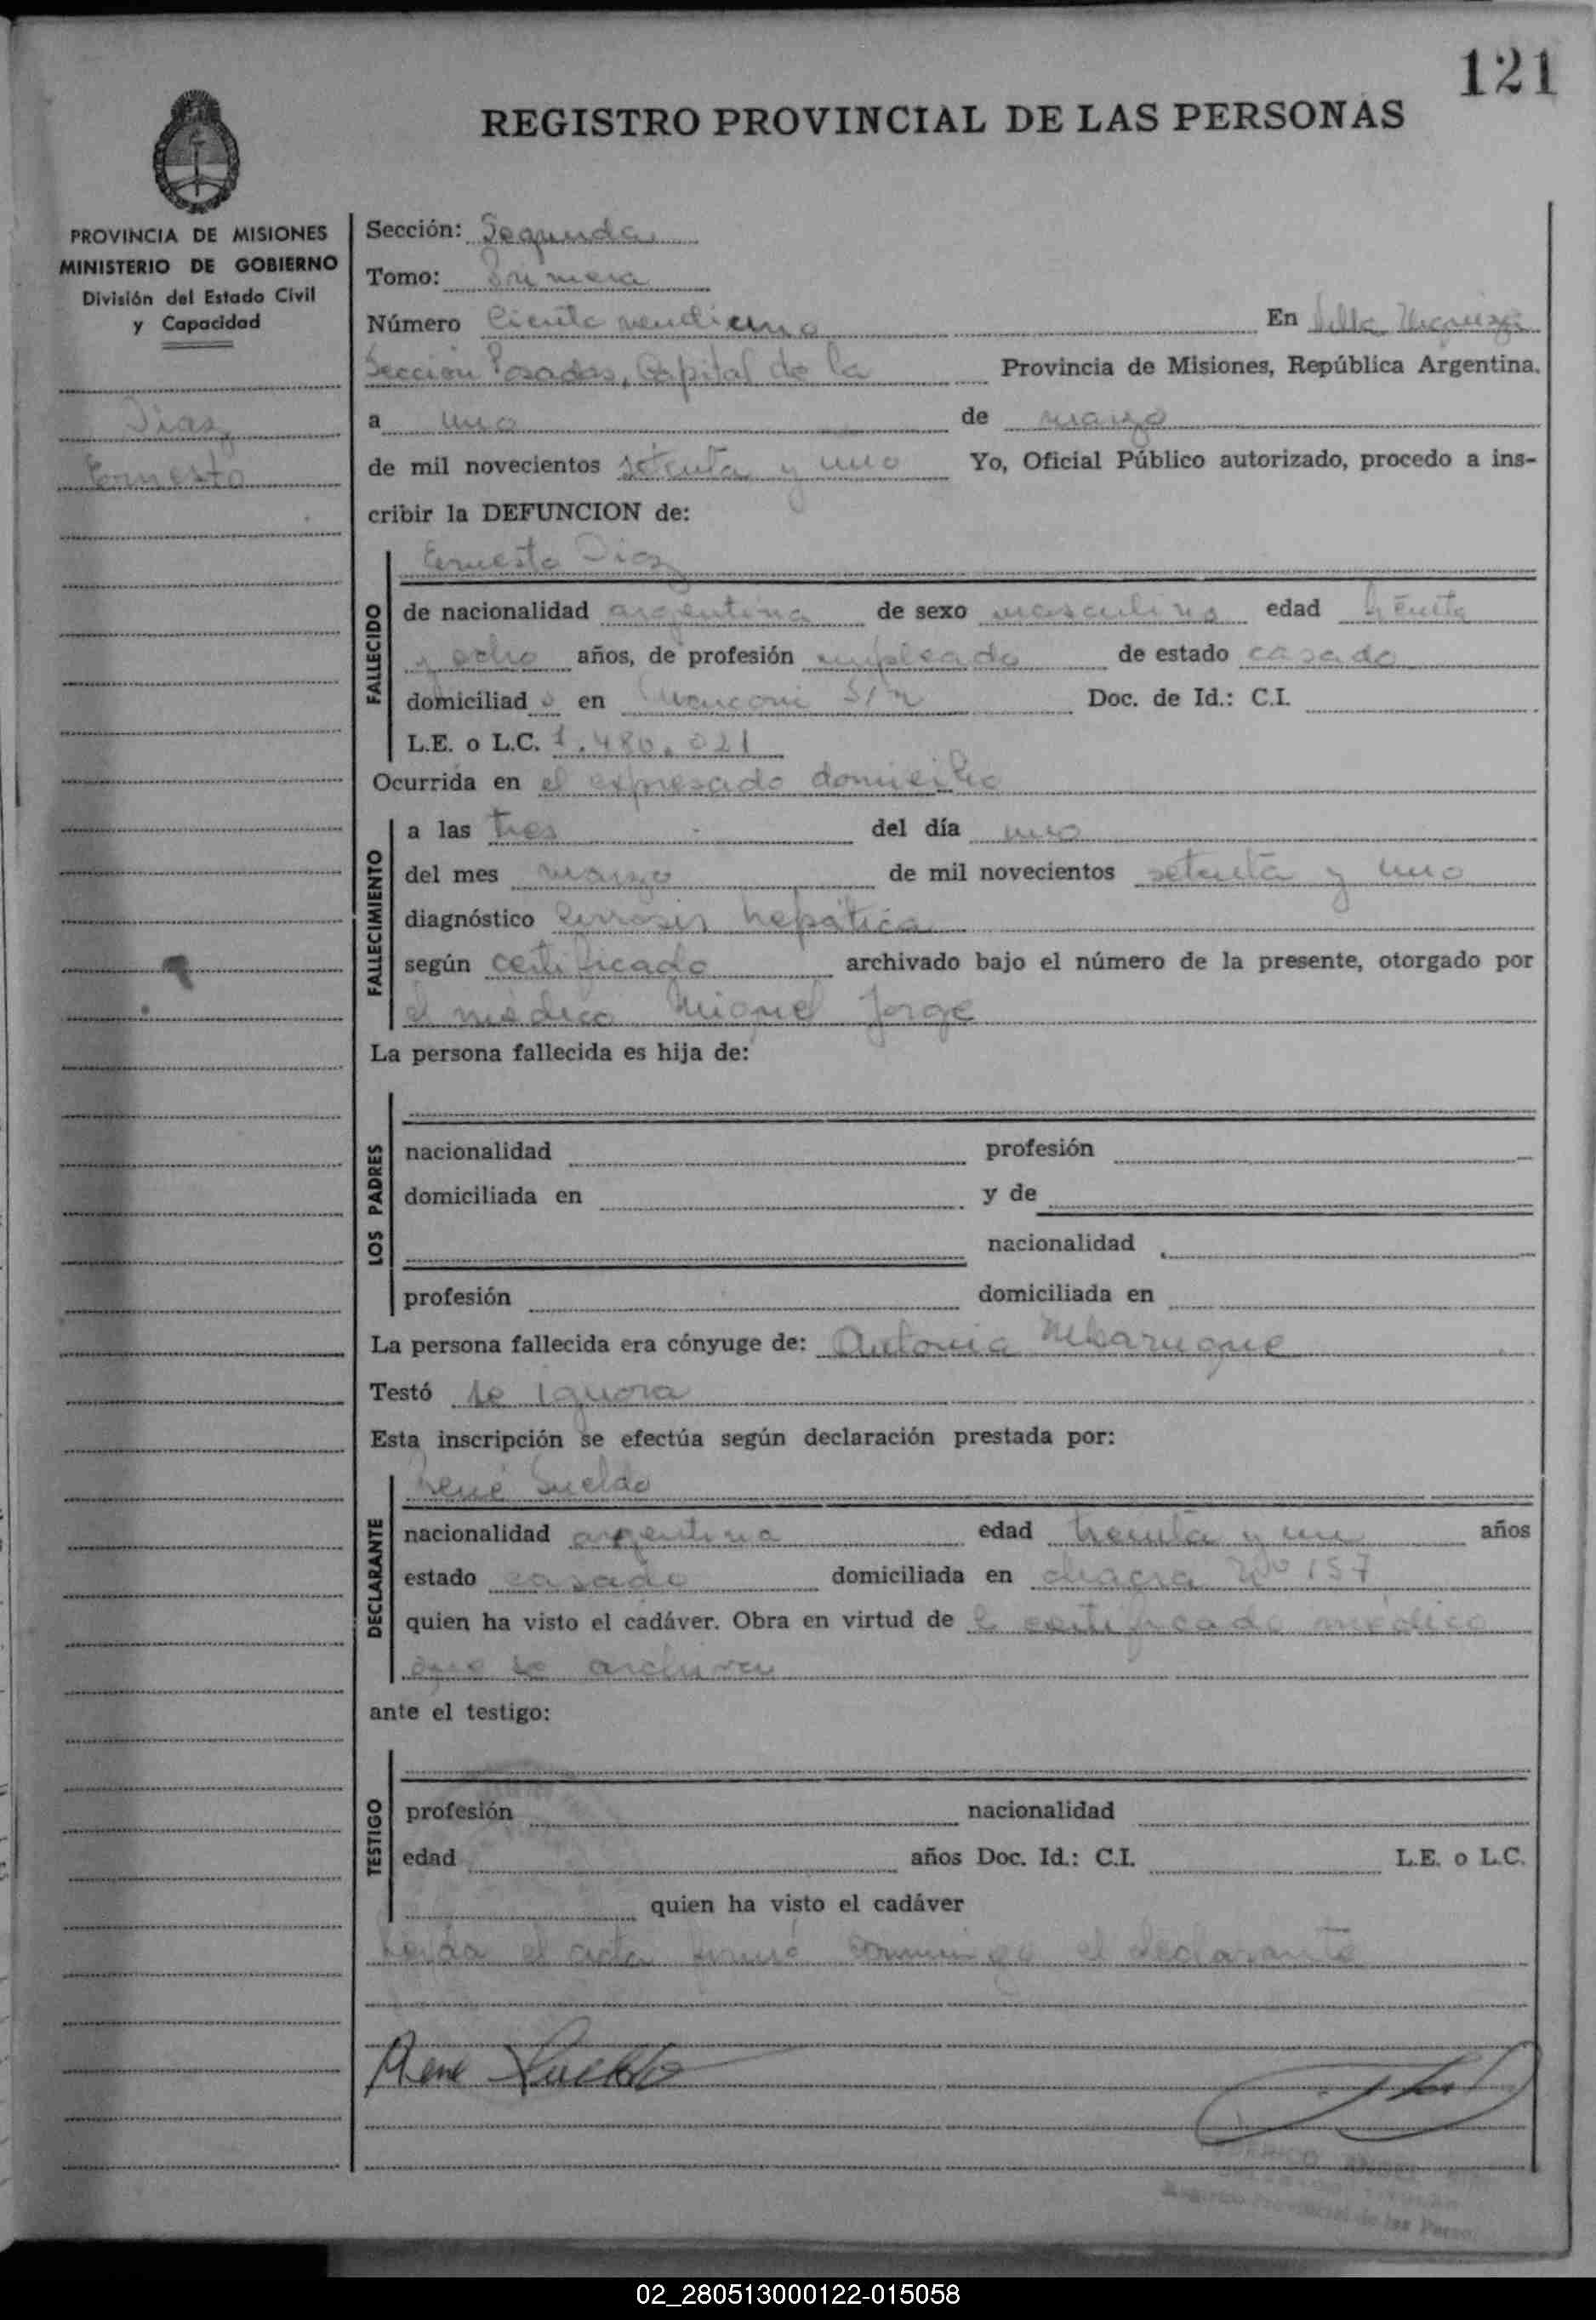 121
REGISTRO PROVINCIAL DE LAS PERSONAS
PROVINCIA DE MISIONES
MINISTERIO DE GOBIERNO
División del Estado Civil
y Capacidad
Diaz
Ernesto
Sección: Segunda
Tomo: Primera
Número Ciento veintiuno En Villa Urquiza
Sección Posadas, Capital de la Provincia de Misiones, República Argentina.
a uno de marzo
de mil novecientos setenta y uno Yo, Oficial Público autorizado, procedo a ins-
cribir la DEFUNCION de:
Ernesto Diaz
FALLECIDO
de nacionalidad argentina de sexo masculino edad treinta
y ocho años, de profesión empleado de estado casado
domiciliad o en S/n Doc. de Id.: C.I.
L.E. o L.C. 1.480.021
Ocurrida en el expresado domicilio
FALLECIMIENTO
a las tres del día uno
del mes marzo de mil novecientos setenta y uno
diagnóstico Cirrosis hepática
según certificado archivado bajo el número de la presente, otorgado por
el médico Miguel Jorge
La persona fallecida es hija de:
LOS PADRES
nacionalidad profesión
domiciliada en y de
nacionalidad
profesión domiciliada en
La persona fallecida era cónyuge de: Antonia
Testó se ignora
Esta inscripción se efectúa según declaración prestada por:
René Sueldo
DECLARANTE
nacionalidad argentina edad treinta y un años
estado casado domiciliada en chacra Nº 157
quien ha visto el cadáver. Obra en virtud de certificado médico
que se archiva
ante el testigo:
TESTIGO
profesión nacionalidad
edad años Doc. Id.: C.I. L.E. o L.C.
quien ha visto el cadáver
Leída el acta firmó conmigo el declarante
Rene Sueldo
Registro Provincial de las Perso
02_280513000122-015058